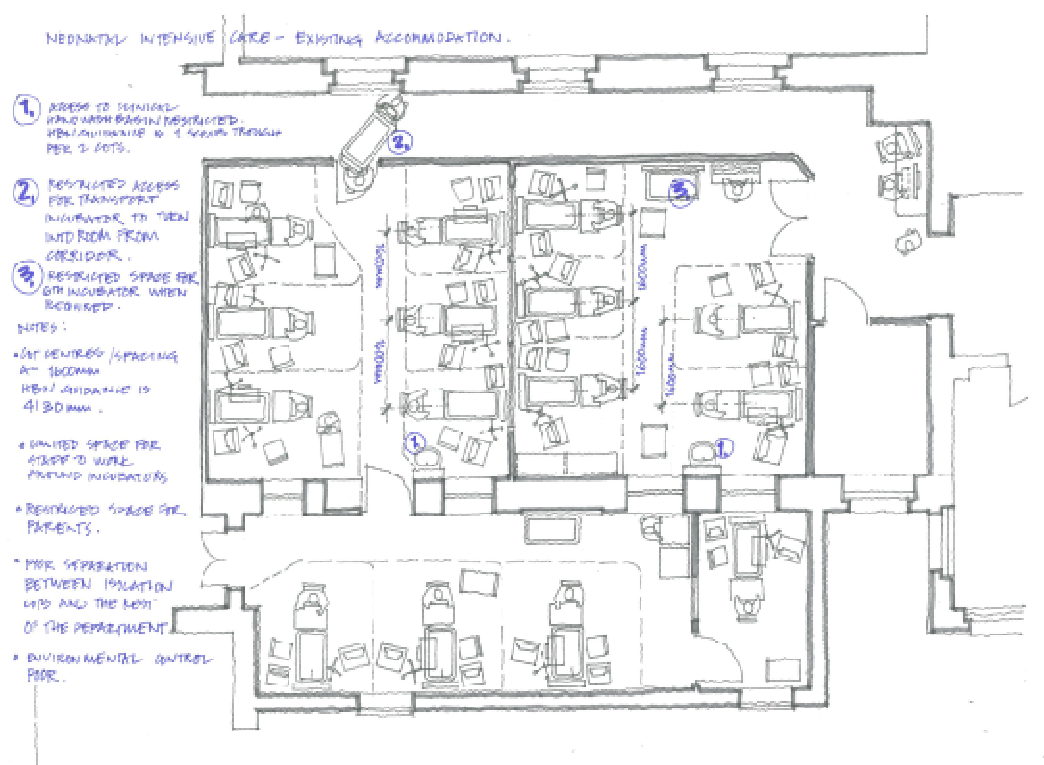 NEONATAL INTENSIVE CARE - EXISTING ACCOMMODATION.
1. ACCESS TO CLINICAL
HANDWASH BASIN RESTRICTED.
HBN GUIDANCE IS 1 SCRUB TROUGH
PER 2 COTS.
2. RESTRICTED ACCESS
FOR TRANSPORT
INCUBATOR TO TURN
INTO ROOM FROM
CORRIDOR.
3. RESTRICTED SPACE FOR
6TH INCUBATOR WHEN
REQUIRED.
NOTES:
• COT CENTRES / SPACING
AT 1600MM
HBN GUIDANCE IS
4130mm.
• LIMITED SPACE FOR
STAFF TO WORK
AROUND INCUBATORS
• RESTRICTED SPACE FOR
PARENTS.
• POOR SEPARATION
BETWEEN ISOLATION
COTS AND THE REST
OF THE DEPARTMENT.
• ENVIRONMENTAL CONTROL
POOR.
2.
3.
1600mm
1600mm
1600mm
1600mm
1600mm
1.
1.